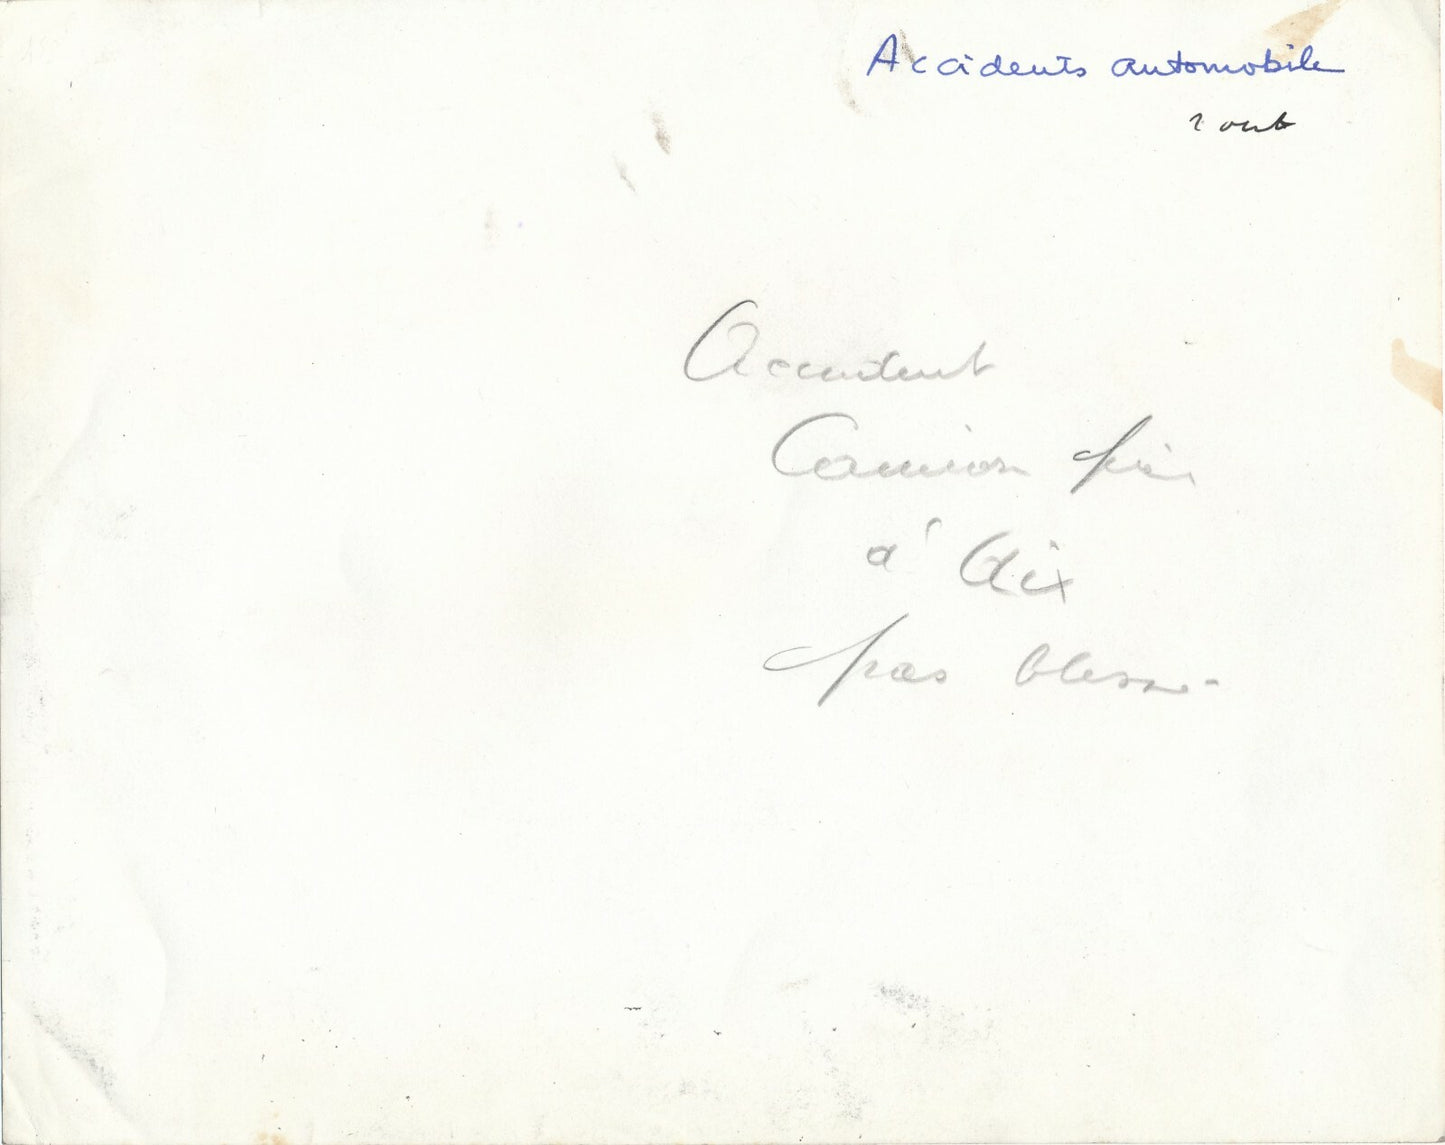 Accidents automobile
Accident
Camion
à Aix
pas blessé